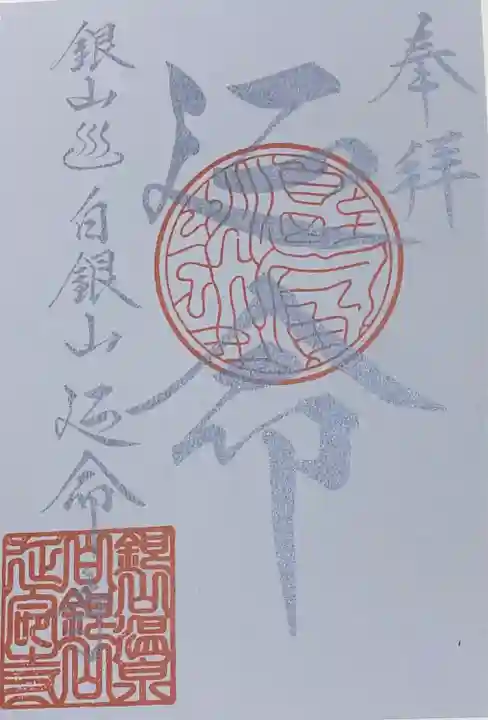 奉拝
延命
銀山♨白銀山延命寺
銀山温泉
白銀山
延命寺